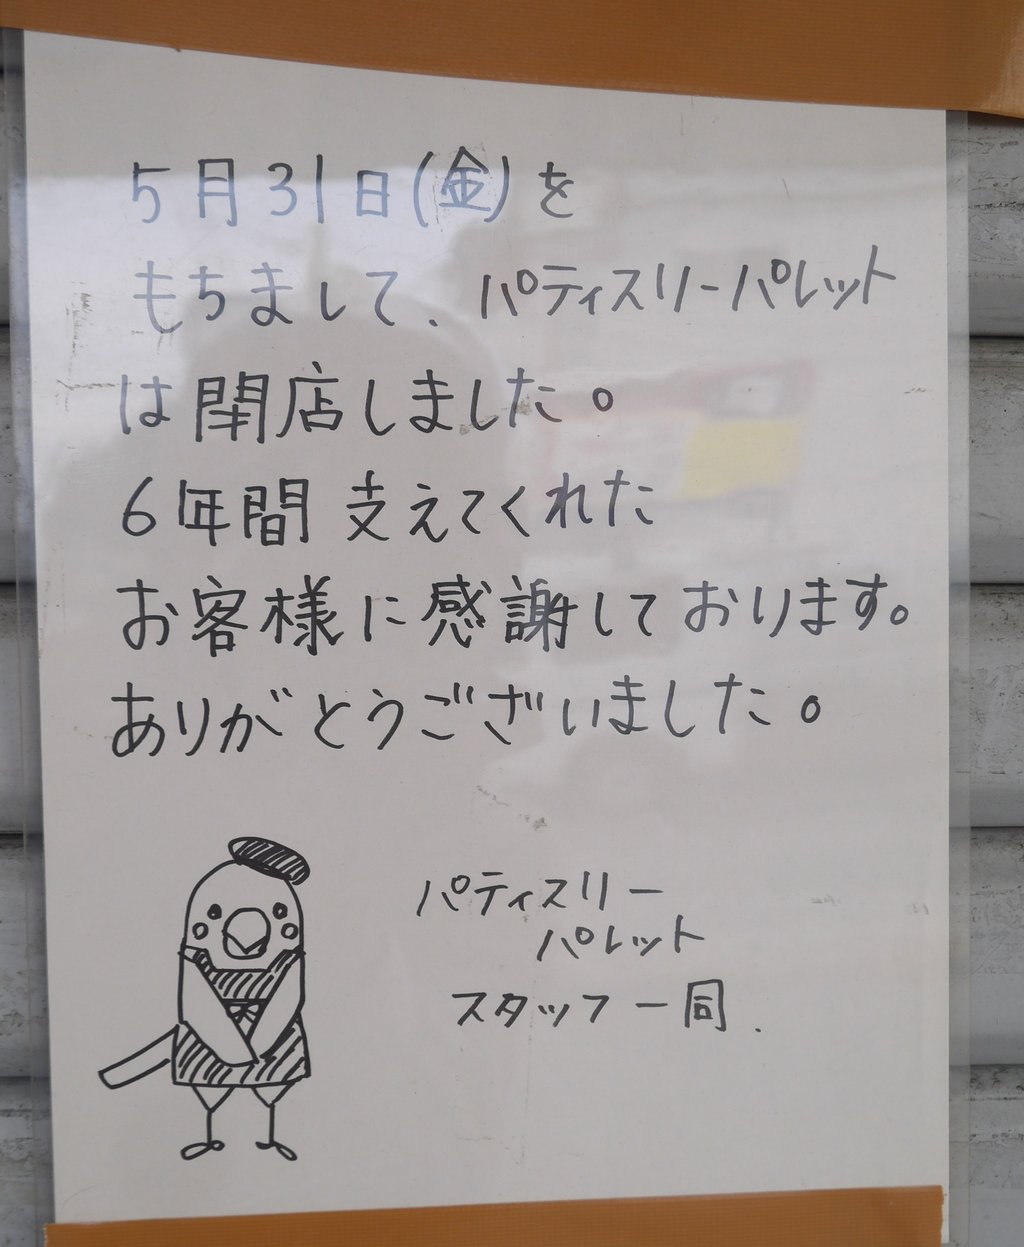 5月31日(金)を
もちまして、パティスリーパレット
は閉店しました。
6年間支えてくれた
お客様に感謝しております。
ありがとうございました。
パティスリー
パレット
スタッフ一同.